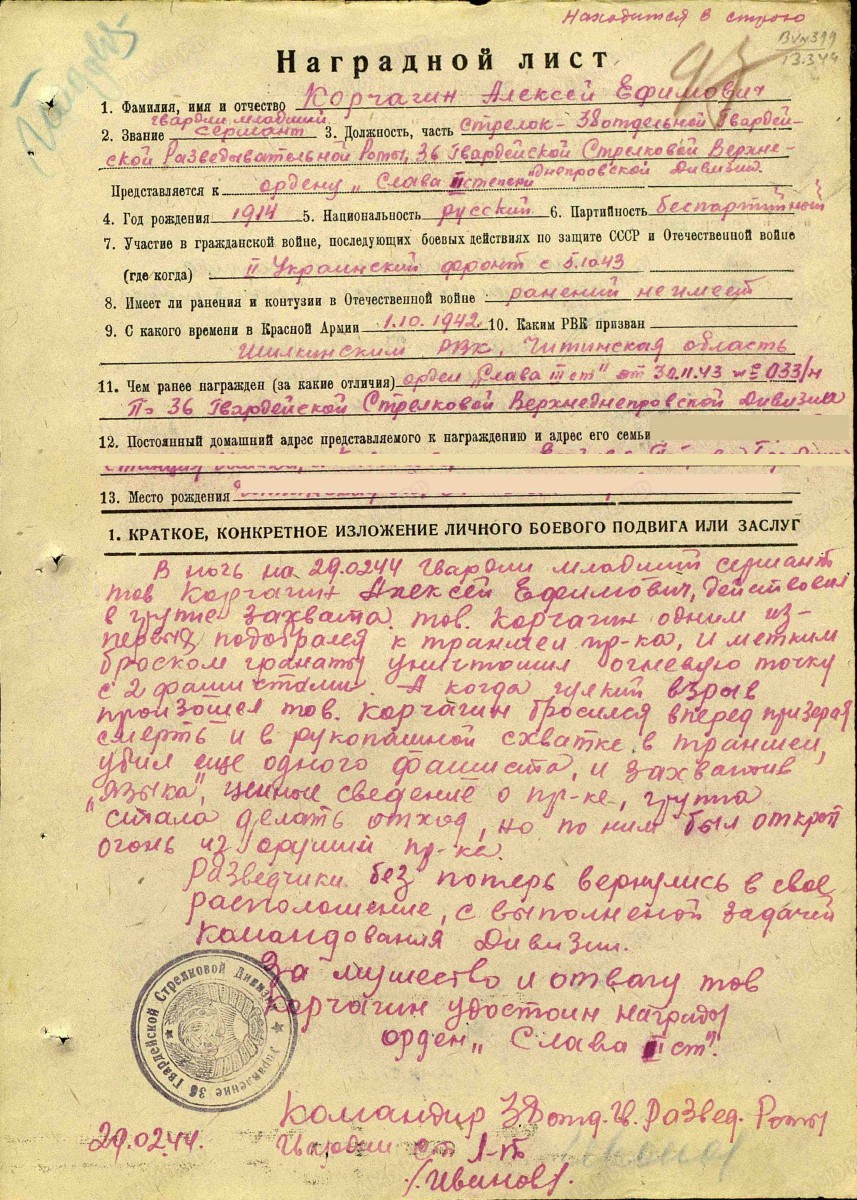 Находится в строю
Вх № 399
13.3.44
Наградной лист
1. Фамилия, имя и отчество Корчагин Алексей Ефимович
гвардии младший
2. Звание сержант 3. Должность, часть Стрелок - 38 отдельной Гвардей-
ской Разведывательной Роты, 36 Гвардейской Стрелковой Верхне-
Днепровской Дивизии.
Представляется к ордену „Слава II степени"
4. Год рождения 1914 5. Национальность русский 6. Партийность беспартийный
7. Участие в гражданской войне, последующих боевых действиях по защите СССР и Отечественной войне
(где когда) II Украинский фронт с 5.10.43
8. Имеет ли ранения и контузии в Отечественной войне ранений не имеет
9. С какого времени в Красной Армии 1.10.1942 10. Каким РВК призван
Шилкинским РВК, Читинская область
11. Чем ранее награжден (за какие отличия) орден „Слава III ст" от 30.11.43 № 033/н
По 36 Гвардейской Стрелковой Верхнеднепровской Дивизии
12. Постоянный домашний адрес представляемого к награждению и адрес его семьи
13. Место рождения
1. КРАТКОЕ, КОНКРЕТНОЕ ИЗЛОЖЕНИЕ ЛИЧНОГО БОЕВОГО ПОДВИГА ИЛИ ЗАСЛУГ
В ночь на 29.02.44 гвардии младший сержант
тов Корчагин Алексей Ефимович, действовал
в группе захвата. тов. Корчагин одним из-
первых подобрался к траншеи пр-ка, и метким
броском гранаты уничтожил огневую точку
с 2 фашистами. А когда гулкий взрыв
произошел тов. Корчагин бросился вперед призерая
смерть и в рукопашной схватке в траншеи,
убил еще одного фашиста, и захватив
„языка", ценные сведение о пр-ке, группа
стала делать отход, но по ним был открыт
огонь из орудий пр-ка.
Разведчики без потерь вернулись в свое
расположение, с выполненой задачей
командования Дивизии.
За мужество и отвагу тов
Корчагин удостоин награды
орден „Слава II ст".
Управление 36 Гвардейской Стрелковой Дивизии
Командир 38 отд. Гв. Развед. Роты
29.02.44. Гвардии ст. л-нт
/Иванов/.